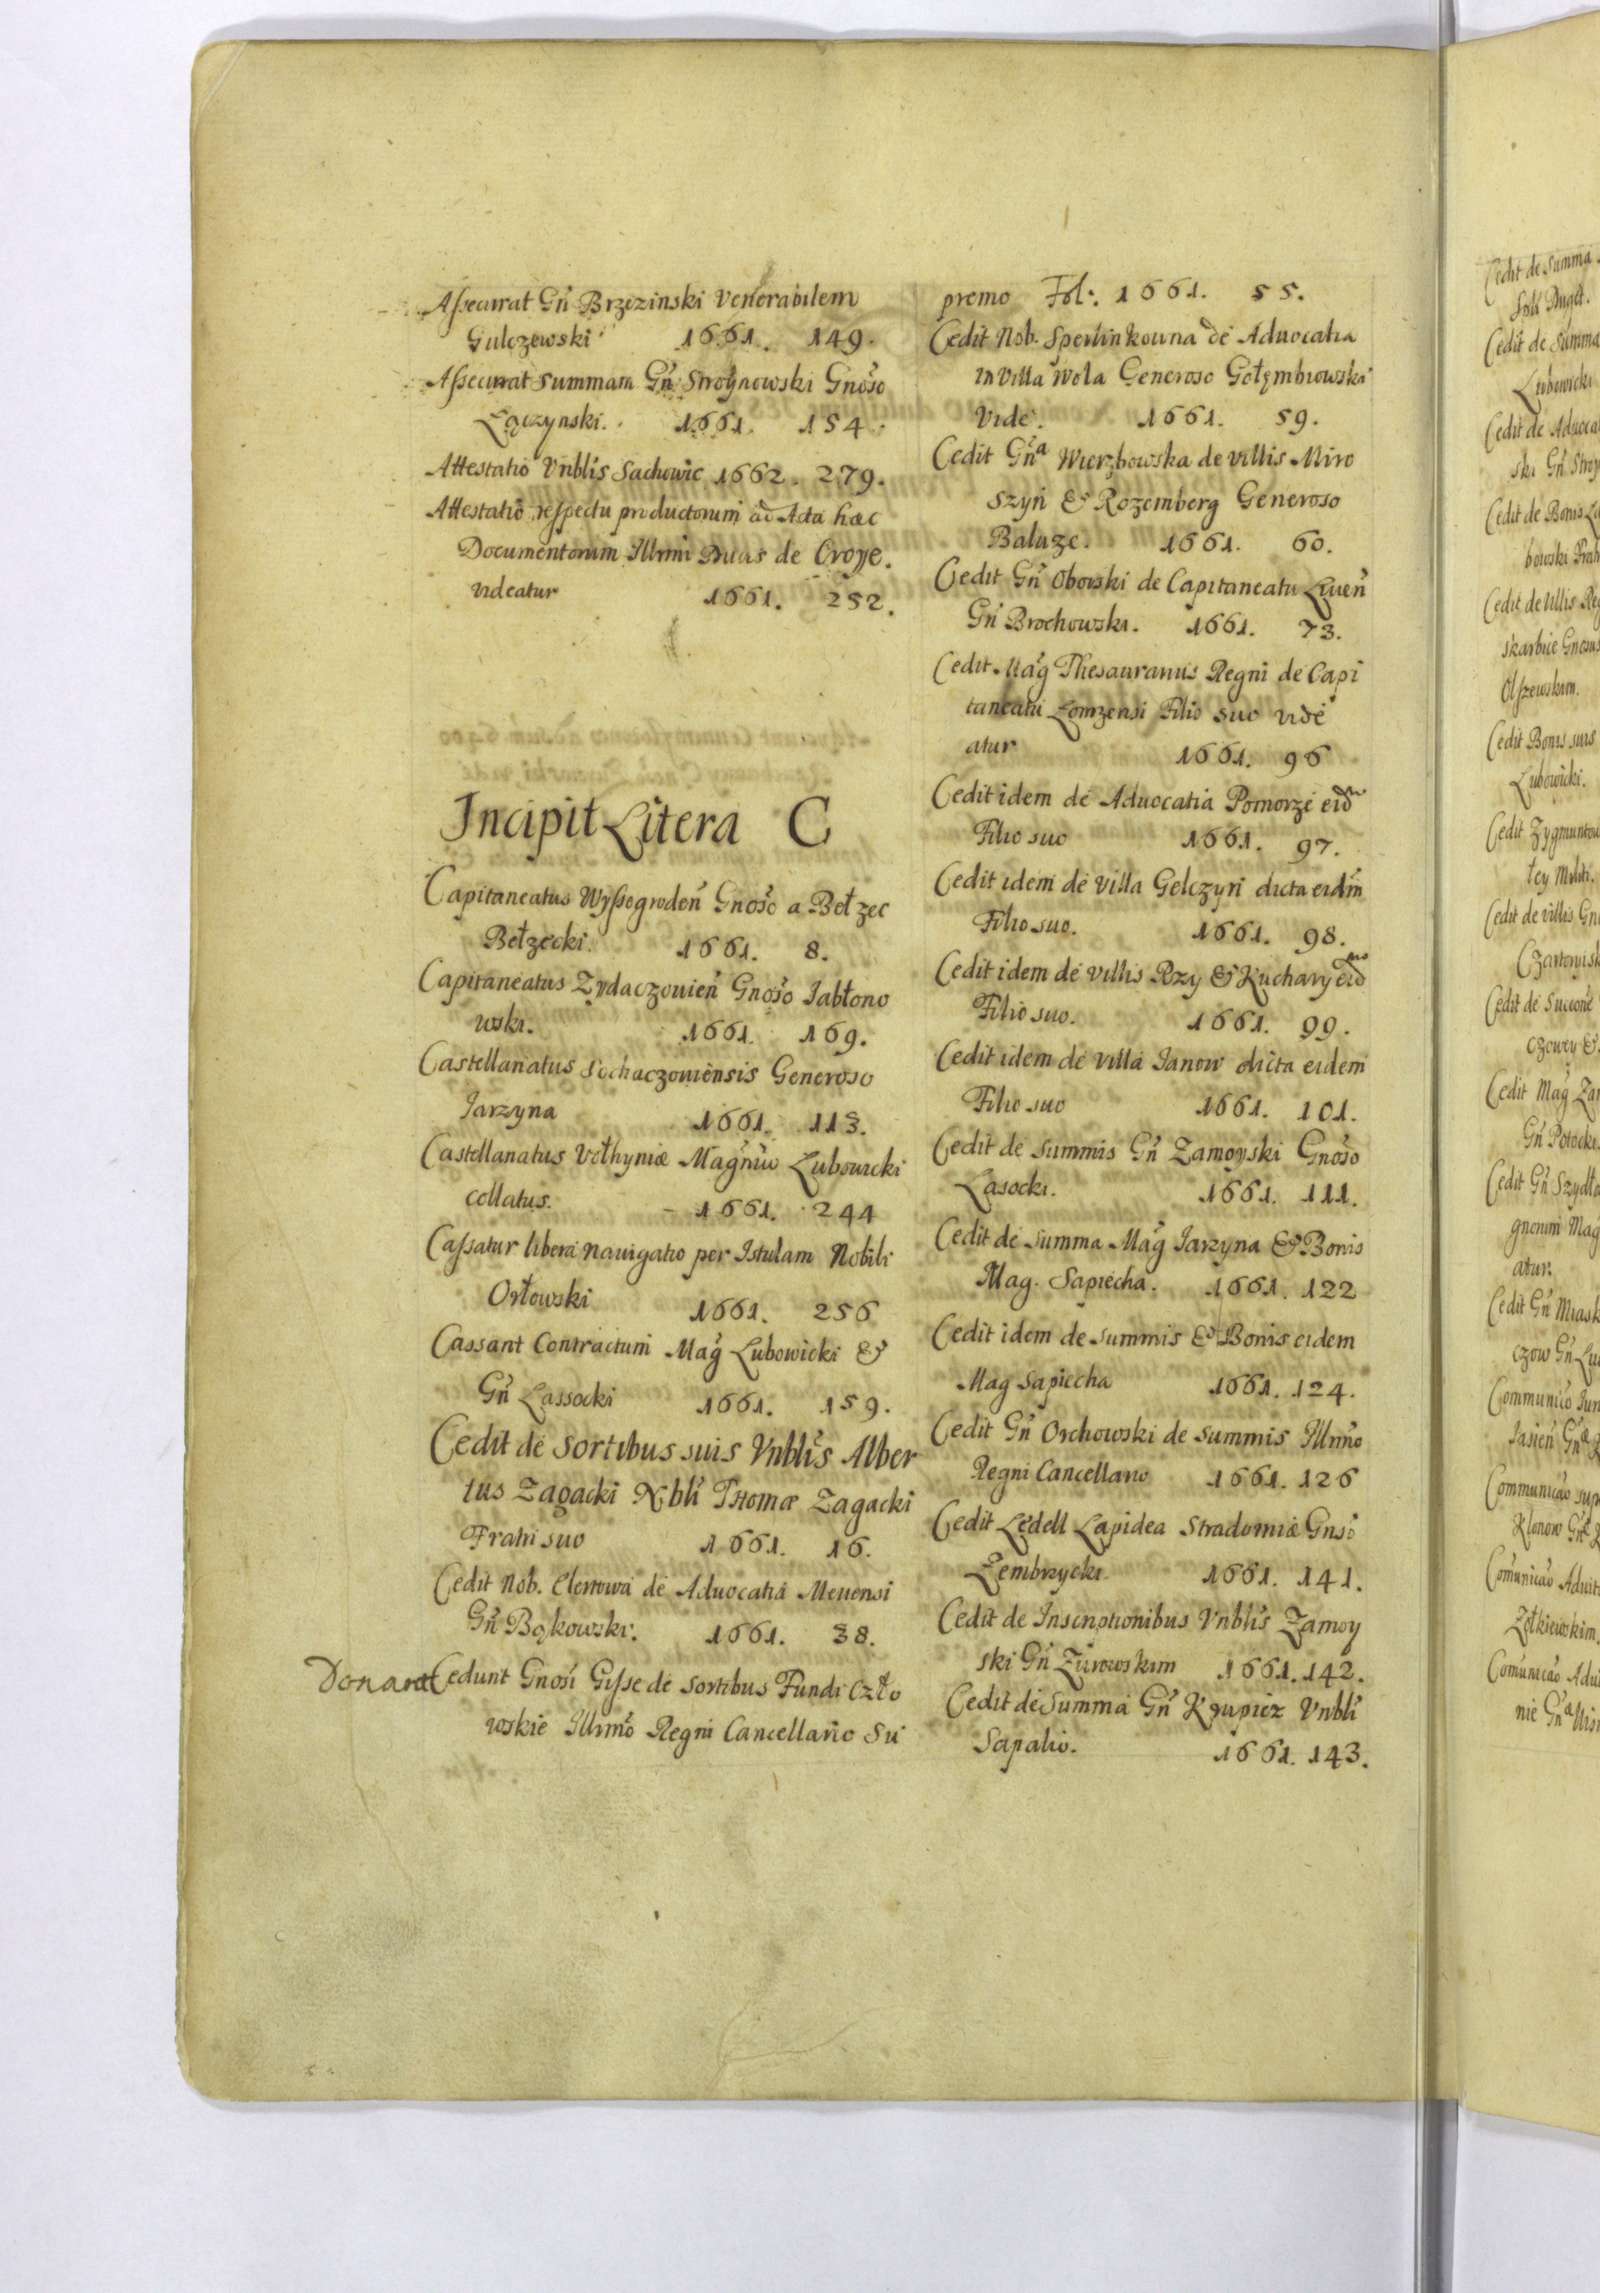 Assecurat Gn̄ Brzezinski Venerabilem
Gulczewski 1661. 149.
Assecurat summam Gn̄ Stroynowski Gnoso
Łączynski. 1661. 154.
Attestatio Vnblis Sachowic 1662. 279.
Attestatio respectu productorum ad Acta hæc
Documentorum Illrmi Ducis de Croye.
videatur 1661. 252.
Incipit Litera C
Capitaneatus Wyssogroden̄ Gnoso a Bełzec
Bełzecki. 1661. 8.
Capitaneatus Zydaczouien̄ Gnoso Jabłono
wski. 1661. 169.
Castellanatus Sochaczouiensis Generoso
Jarzyna 1661. 113.
Castellanatus Vołhyniæ Lubowicki
collatus. 1661. 244
Cassatur libera nauigatio per Istulam Nobili
Orłowski 1661. 256
Cassant Contractum Mag̃ Lubowicki &
Gn̄ Lassocki 1661. 159.
Cedit de sortibus suis Vnblis Alber
tus Zagacki Nbli Thomæ Zagacki
Fratri suo 1661. 16.
Cedit Nob. de Aduocatia Meuensi
Gn̄ Bąkowski. 1661. 38.
Cedunt Gnosi Gisse de sortibus Fundi Czło
wskie Illrmo Regni Cancellario Su
premo Fol: 1661. 55.
Cedit Nob. Sperlinkouna de Aduocatia
in Villa Wola Generoso Gołęmbiowski
Vide. 1661. 59.
Cedit Gn̄a Wierzbowska de villis Miro
szyn & Rozemberg Generoso
Baluze. 1661. 60.
Cedit Gn̄ Oborski de Capitaneatu Liuen̄
Gn̄ Brochowski. 1661. 73.
Cedit Mag̃ Thesaurarius Regni de Capi
taneatu Łomzensi Filio suo vide
atur 1661. 96
Cedit idem de Aduocatia Pomorze
Filio suo 1661. 97.
Cedit idem de villa Gelczyn dicta eidm̄
Filio suo. 1661. 98.
Cedit idem de villis Rzy & Kuchary
Filio suo. 1661. 99.
Cedit idem de villa Janow dicta eidem
Filio suo 1661. 101.
Cedit de summis Gn̄ Zamoyski Gnoso
Lasocki. 1661. 111.
Cedit de summa Mag̃ Jarzyna & Bonis
Mag. Sapiecha. 1661. 122
Cedit idem de summis & Bonis eidem
Mag Sapiecha 1661. 124.
Cedit Gn̄ Orchowski de summis Illrmo
Regni Cancellario 1661. 126
Cedit Ledell Lapidea Stradomiæ Gnso
Zembrzycki. 1661. 141.
Cedit de Inscriptionibus Vnblis Zamoy
ski Gn̄ Zurowskim 1661. 142.
Cedit de Summa Gn̄ Krupicz Vnbli
Sapalio. 1661. 143.
Cedit de Summa
Cedit de Summa
Lubowicki
ski Gn̄
Cedit de Bonis
Cedit de Villis
Olszewskim.
Cedit Bonis suis
Lubowicki.
Cedit de villis
Cedit Mag̃
Gn̄ Potocki.
atur.
Cedit Gn̄